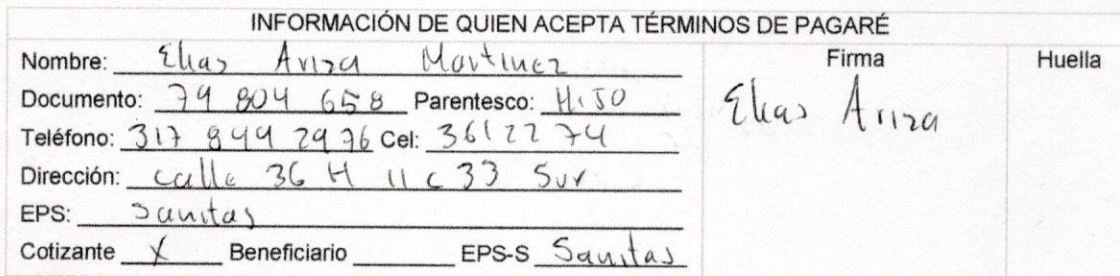 INFORMACIÓN DE QUIEN ACEPTA TÉRMINOS DE PAGARÉ
Nombre: Elias Ariza Martinez
Documento: 79 804 658 Parentesco: HiJO
Teléfono: 317 849 2976 Cel: 3612274
Dirección: calle 36 H 11 c 33 Sur
EPS: Sanitas
Cotizante X Beneficiario EPS-S Sanitas
Firma
Elias Ariza
Huella